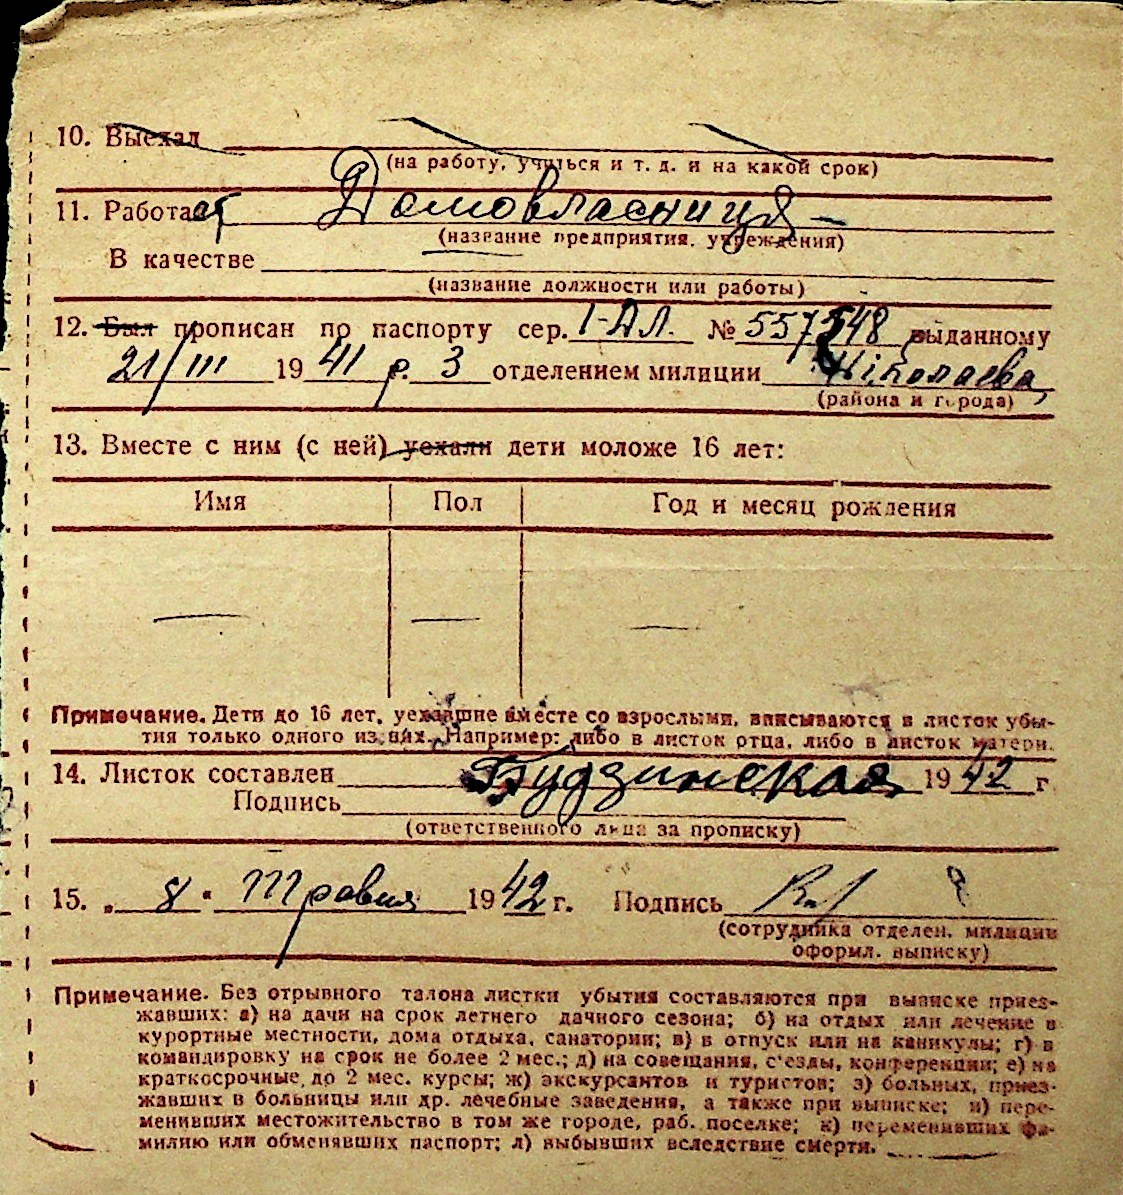 10. Выехал
(на работу, учиться и т. д. и на какой срок)
11. Работает Домовласниця
(название предприятия, учреждения)
В качестве
(название должности или работы)
12. Был прописан по паспорту сер. І-ДЛ. № 557548 выданному
21/III 1941 р. 3 отделением милиции Ніколаева,
(района и города)
13. Вместе с ним (с ней) уехали дети моложе 16 лет:
Имя Пол Год и месяц рождения
— — —
Примечание. Дети до 16 лет, уехавшие вместе со взрослыми, вписываются в листок убы-
тия только одного из них. Например: либо в листок отца, либо в листок матери.
14. Листок составлен Будзинская 1942 г
Подпись
(ответственного лица за прописку)
15. „ 8 " Травня 1942 г. Подпись
(сотрудника отделен. милиции
оформл. выписку)
Примечание. Без отрывного талона листки убытия составляются при выписке приез-
жавших: а) на дачи на срок летнего дачного сезона; б) на отдых или лечение в
курортные местности, дома отдыха, санатории; в) в отпуск или на каникулы; г) в
командировку на срок не более 2 мес.; д) на совещания, с'езды, конференции; е) на
краткосрочные, до 2 мес. курсы; ж) экскурсантов и туристов; з) больных, приез-
жавших в больницы или др. лечебные заведения, а также при выписке; и) пере-
менивших местожительство в том же городе, раб. поселке; к) переменивших фа-
милию или обменявших паспорт; л) выбывших вследствие смерти.